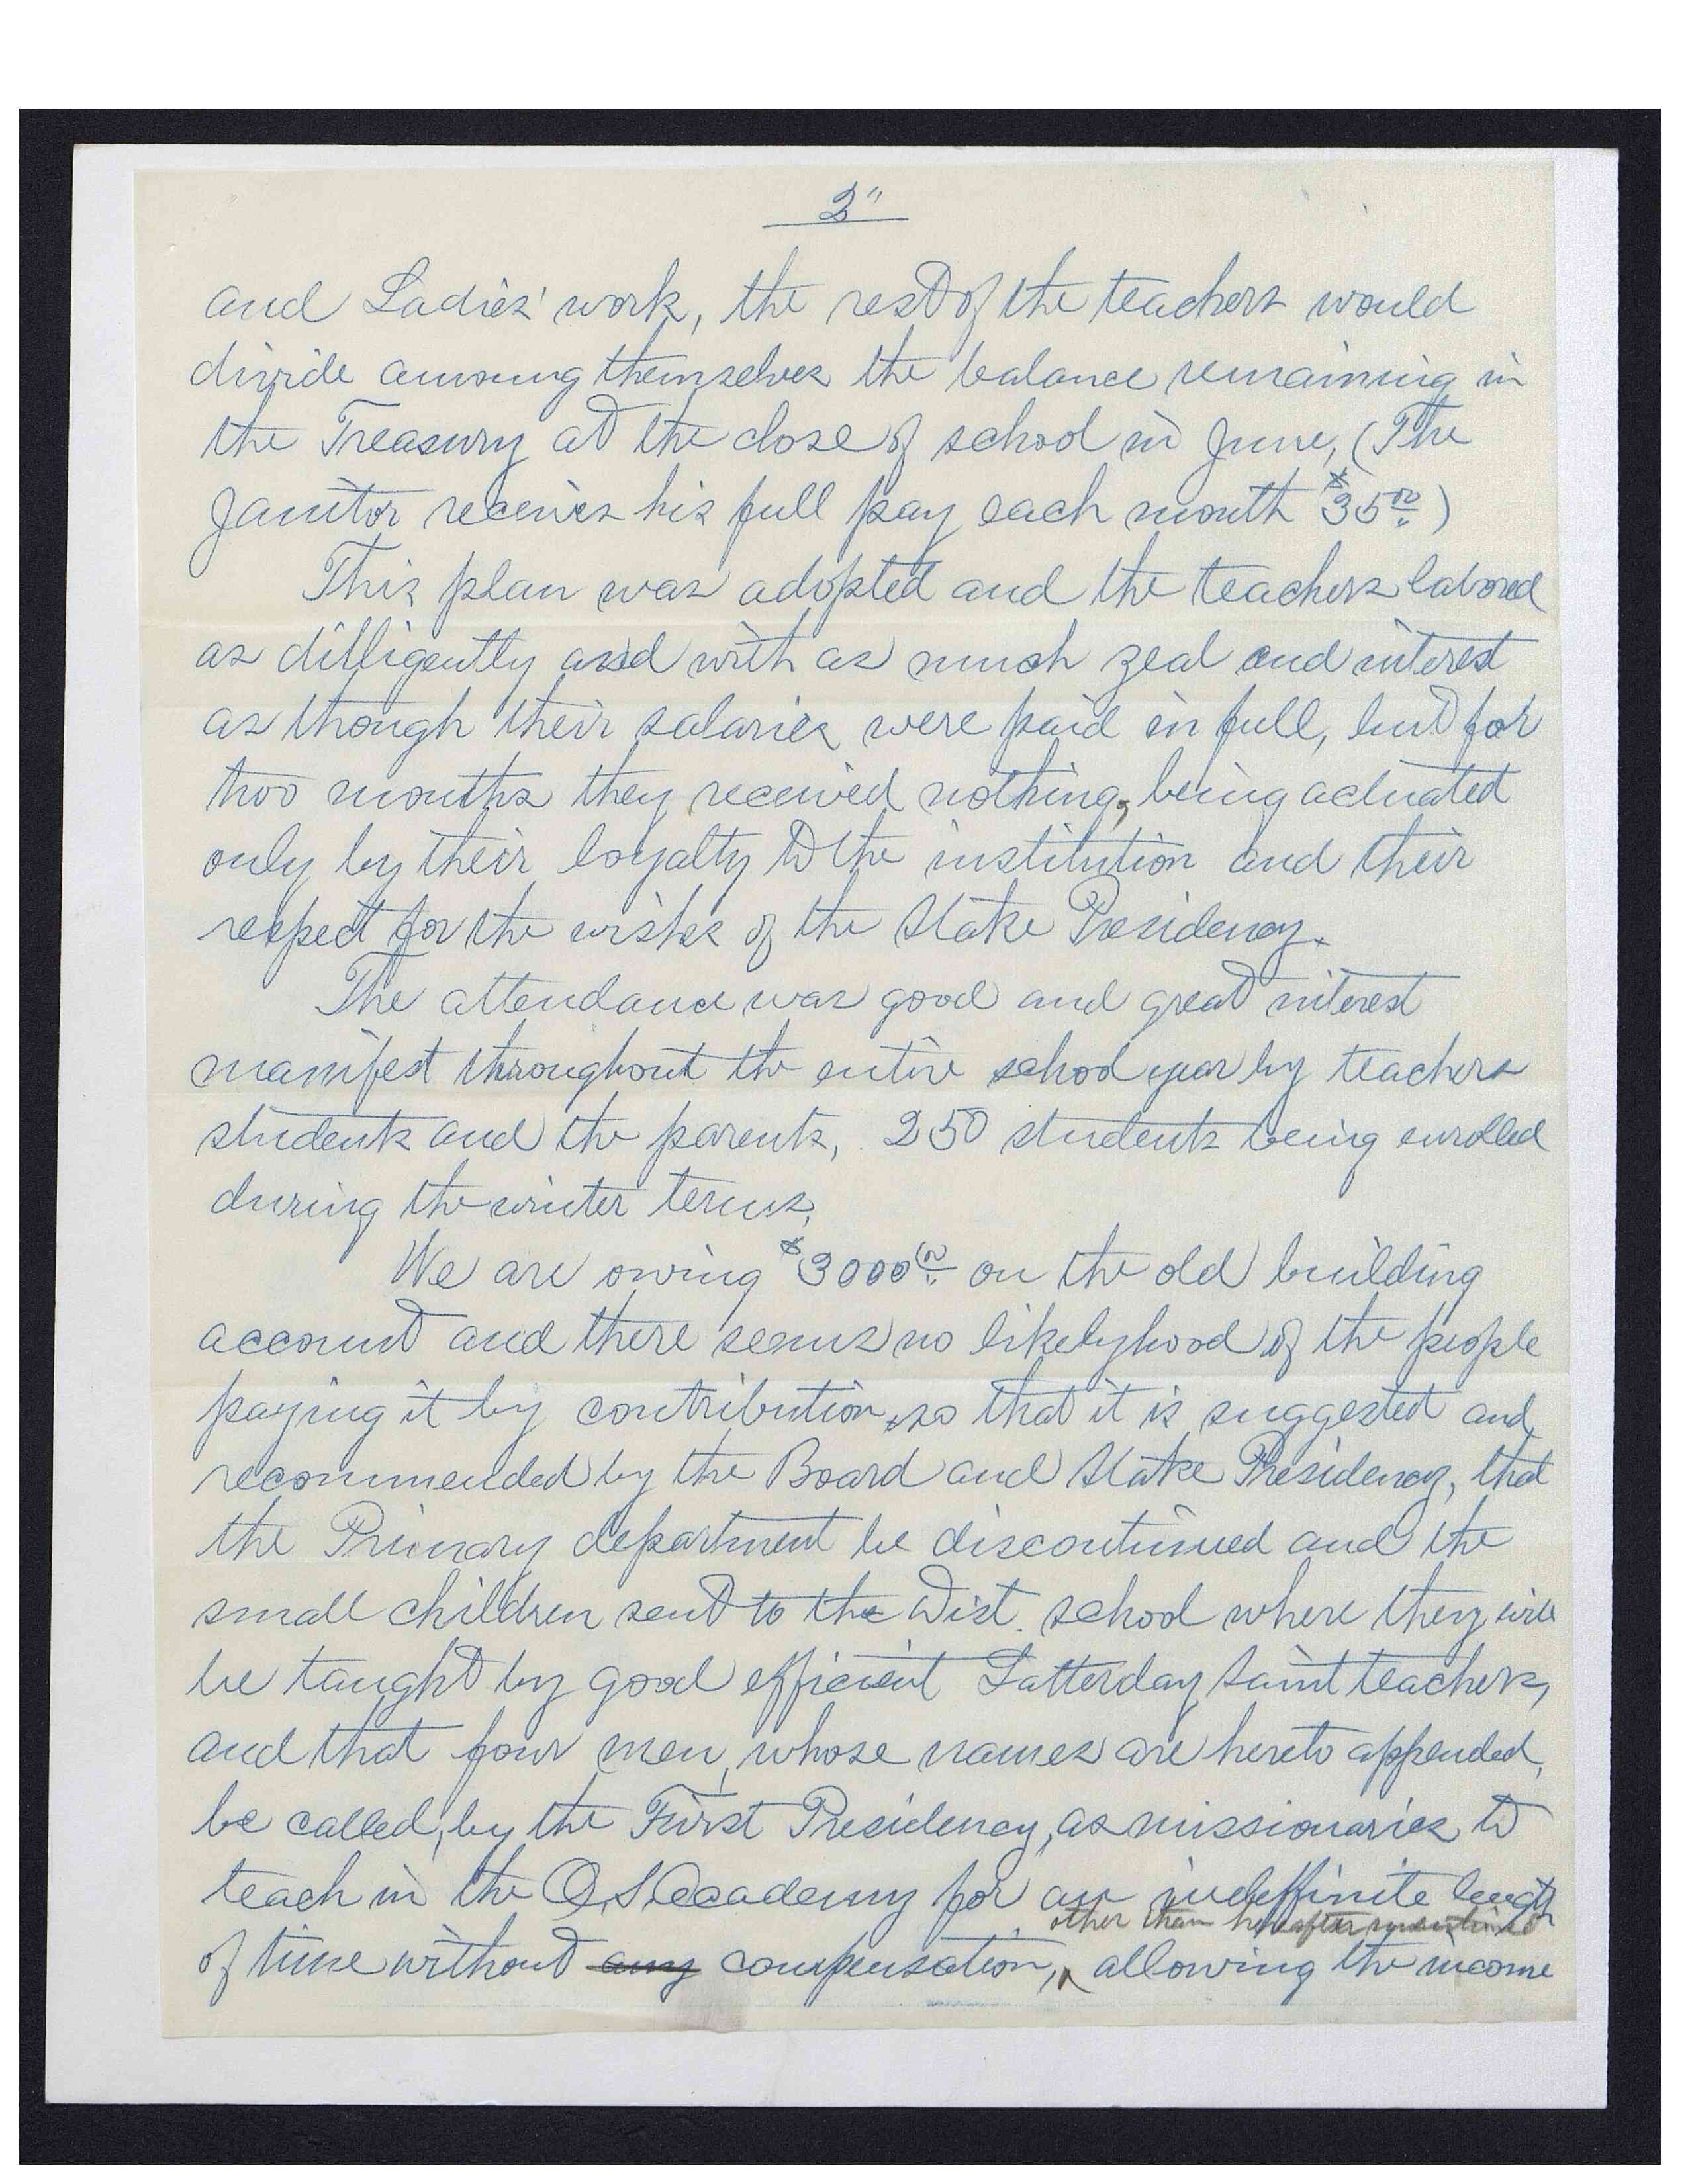 2"
and Ladies' work, the rest of the teachers would
divide among themselves the balance remaining in
the Treasury at the close of school in June, (The
Janitor receives his full pay each month $35.00)
This plan was adopted and the teachers labored
as dilligently and with as much zeal and interest
as though their salaries were paid in full, but for
two months they received nothing, being actuated
only by their loyalty to the institution and their
respect for the wishes of the Stake Presidency.
The attendance was good and great interest
manifest throughout the entire school year by teachers
students and the parents, 250 students being enrolled
during the winter terms.
We are owing $3000.00 on the old building
account and there seems no likelyhood of the people
paying it by contribution, so that it is suggested and
recommended by the Board and Stake Presidency, that
the Primary department be discontinued and the
small children sent to the Dist. school where they will
be taught by good efficient Latterday Saint teachers,
and that four men, whose names are hereto appended,
be called, by the First Presidency, as missionaries to
teach in the O, S, Academy for an indeffinite length
other than hereafter mentioned
of time without any compensation, allowing the income